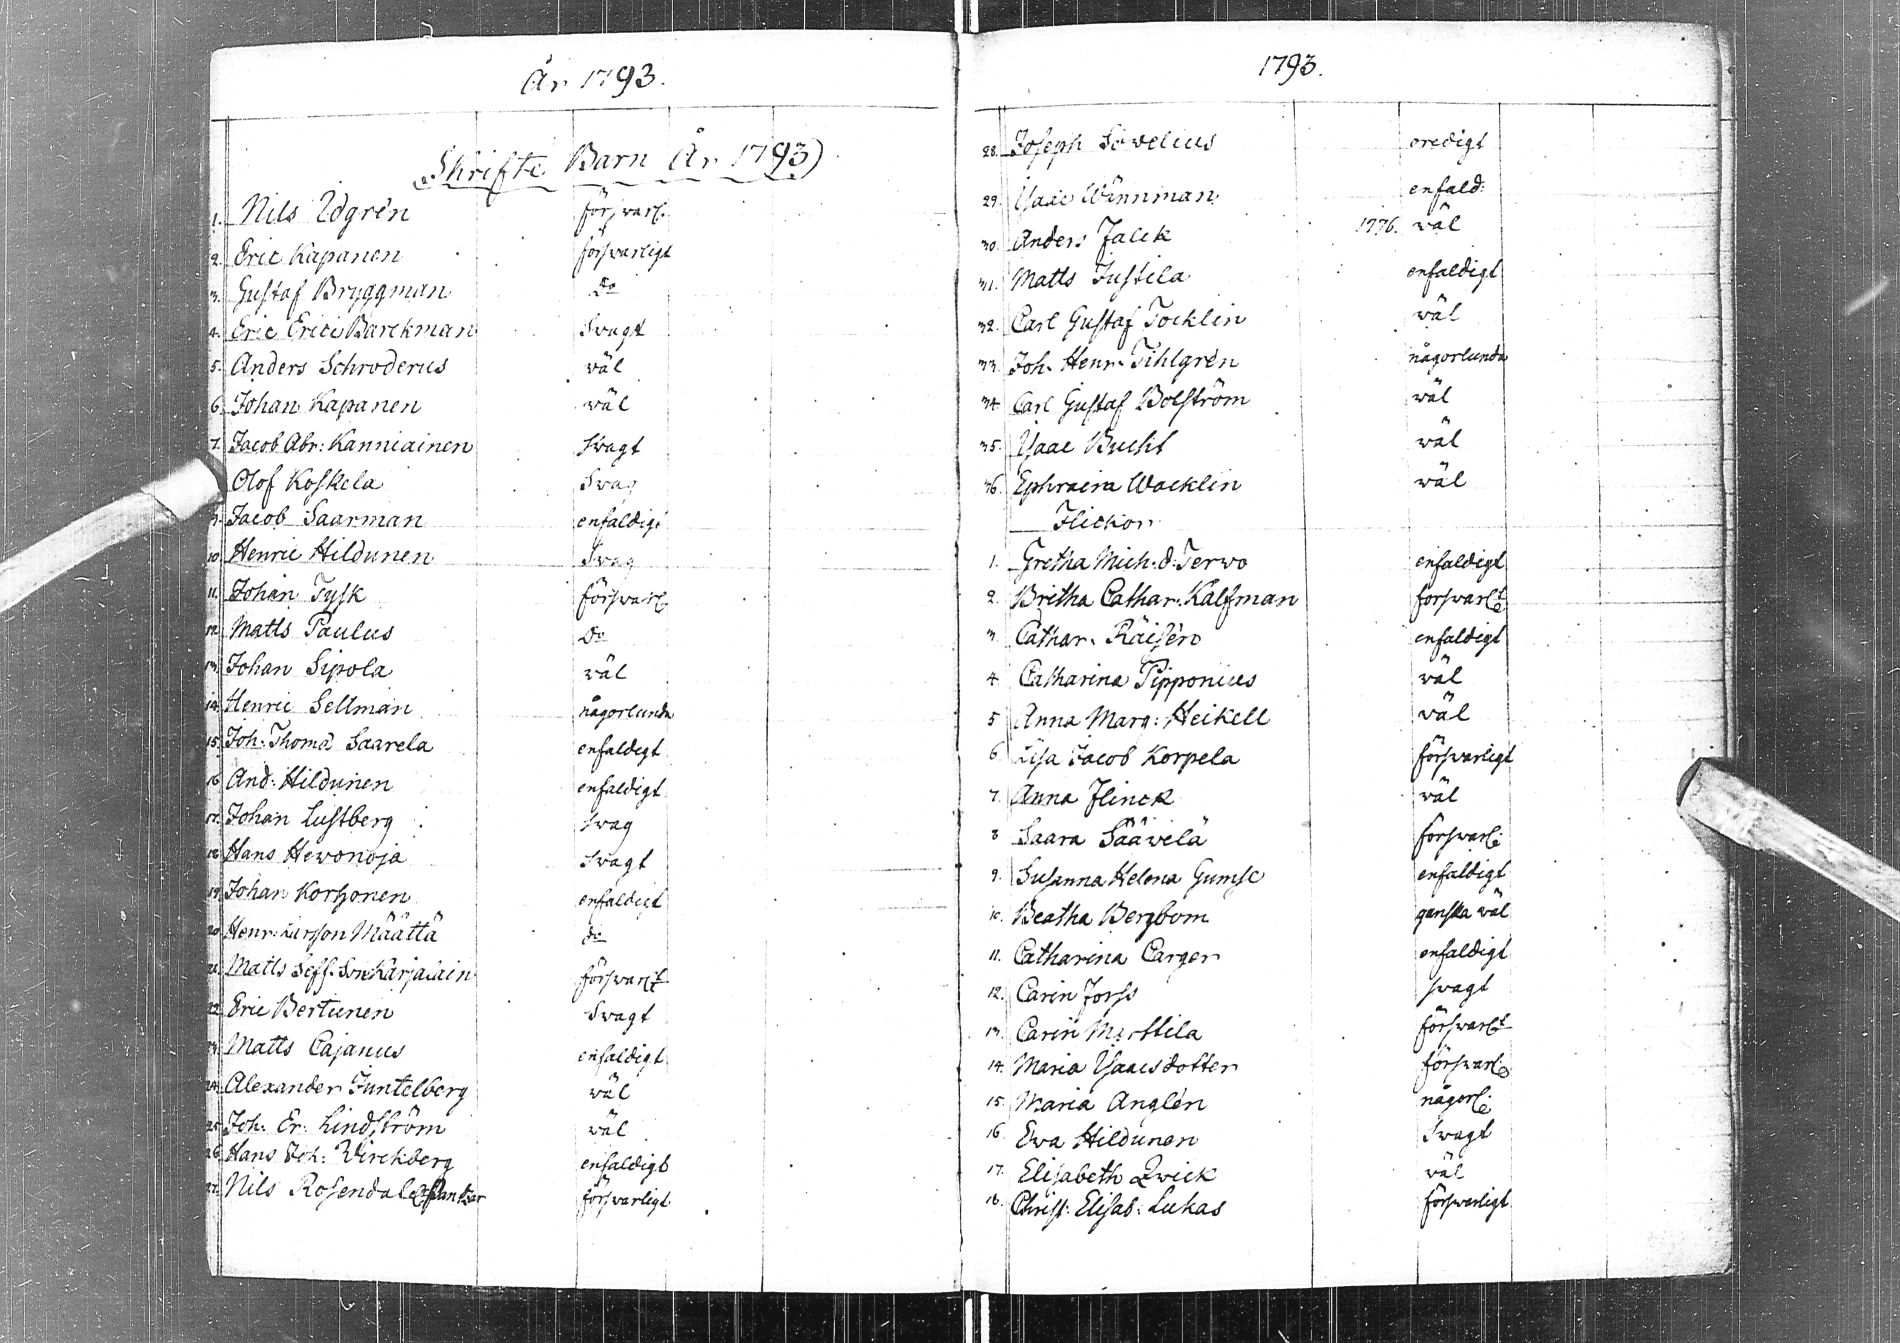 År 1793.
Skrifte Barn År 1793
1. Nils Udgrén försvarl:
2. Eric Kapanen försvarligt
3. Gustaf Bryggman Do
4. Eric Eric Barckman Svagt
5. Anders Schroderus wäl
6. Johan Kapanen wäl
7. Jacob Abr: Kanniainen svagt
Olof Koskela Svag
9. Jacob Saarman enfaldigt
10. Henric Hildunen Svag
11. Johan Tysk försvarl:
12. Matts Paulus Do
13. Johan Sipola wäl
14. Henric Sellman någorlunda
15. Joh: Thoma Saarela enfaldigt
16 And: Hildunen enfaldigt
17. Johan Lustberg svag
18 Hans Hewonoja svagt
19. Johan Korhonen enfaldigt
20 Henr: Larsson Määttä do
21. Matts Seff: Son Karjalain försvarl:t
22 Eric Bertunen Svagt
23. Matts Cajanus enfaldigt
24. Alexander Juntelberg wäl
25 Joh: Er: Lindström wäl
26 Hans Joh: Wirckberg enfaldigt
27. Nils Rosendal försvarligt
1793.
28. Joseph Sovelius oredigt
29. Isaac Wännman enfald:
30. Anders Falck 1776. wäl
31. Matts Justila enfaldigt
32. Carl Gustaf Tocklin wäl
33. Joh: Henr: Tihlgrén någorlunda
34 Carl Gustaf Bolström wäl
35. Isaac Bucht wäl
36. Ephraim Wacklin wäl
Flickor
1. Gretha Mich: d: Terwo enfaldigt
2. Britha Cathar: Kalfman forsvarl:t
3. Cathar: Räisén enfaldigt
4. Catharina Pipponius wäl
5 Anna Marg: Heikell wäl
6 Lisa Jacob Korpela försvarligt
7. Anna Flinck wäl
8 Saara Säävelä försvarl:
9. Susanna Helena Gumse enfaldigt
10. Beatha Bergbom ganska wäl
11. Catharina Carger enfaldigt
12. Carin Forss svagt
13. Carin Marttila försvarl:t
14. Maria Isaacsdotter försvarl:
15. Maria Anglén någorl:
16 Ewa Hildunen Svagt
17. Elisabeth Qvick wäl
18. Christ: Elisab: Lukas försvarligt